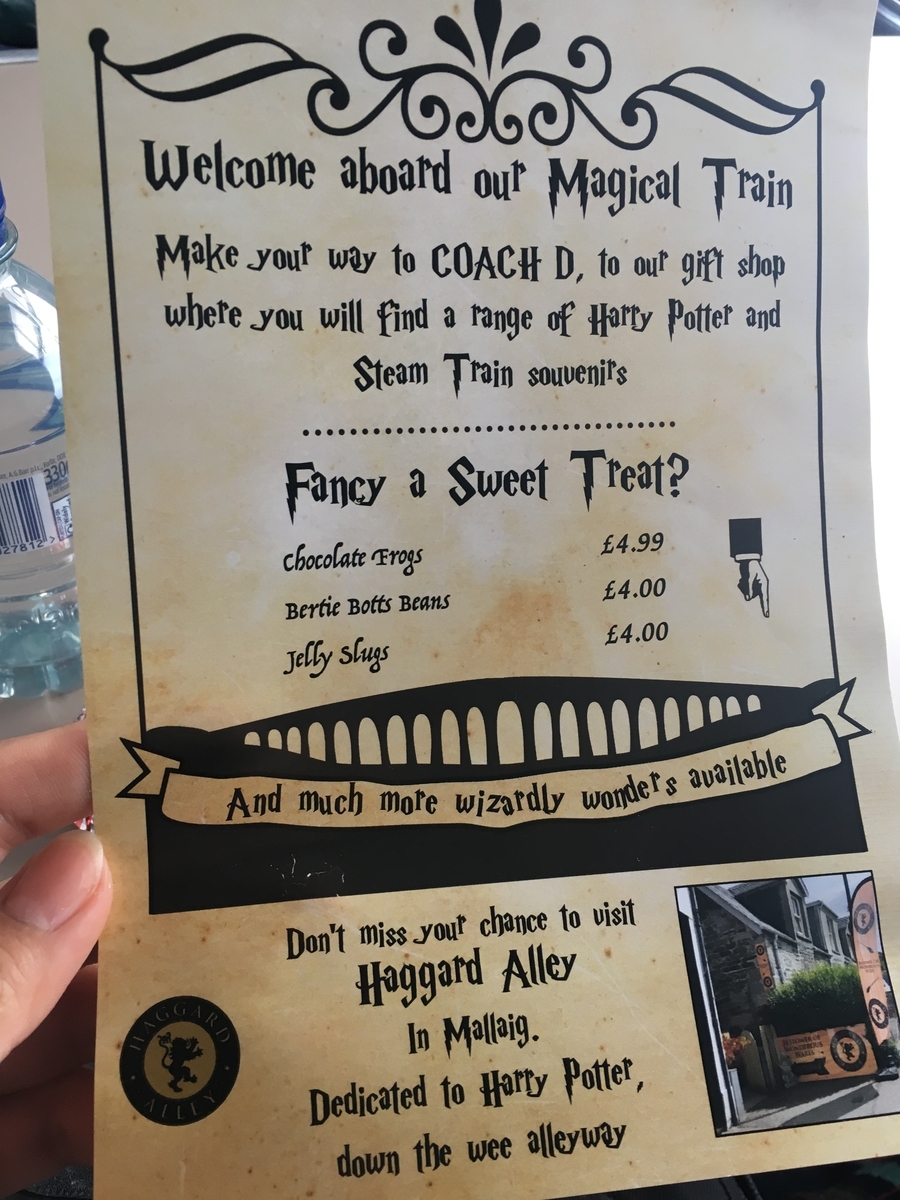 Welcome aboard our Magical Train
Make your way to COACH D, to our gift shop
where you will find a range of Harry Potter and
Steam Train souvenirs
Fancy a Sweet Treat?
Chocolate Frogs £4.99
Bertie Botts Beans £4.00
Jelly Slugs £4.00
And much more wizardly wonders available
Don't miss your chance to visit
Haggard Alley
In Mallaig.
Dedicated to Harry Potter,
down the wee alleyway
HAGGARD
ALLEY